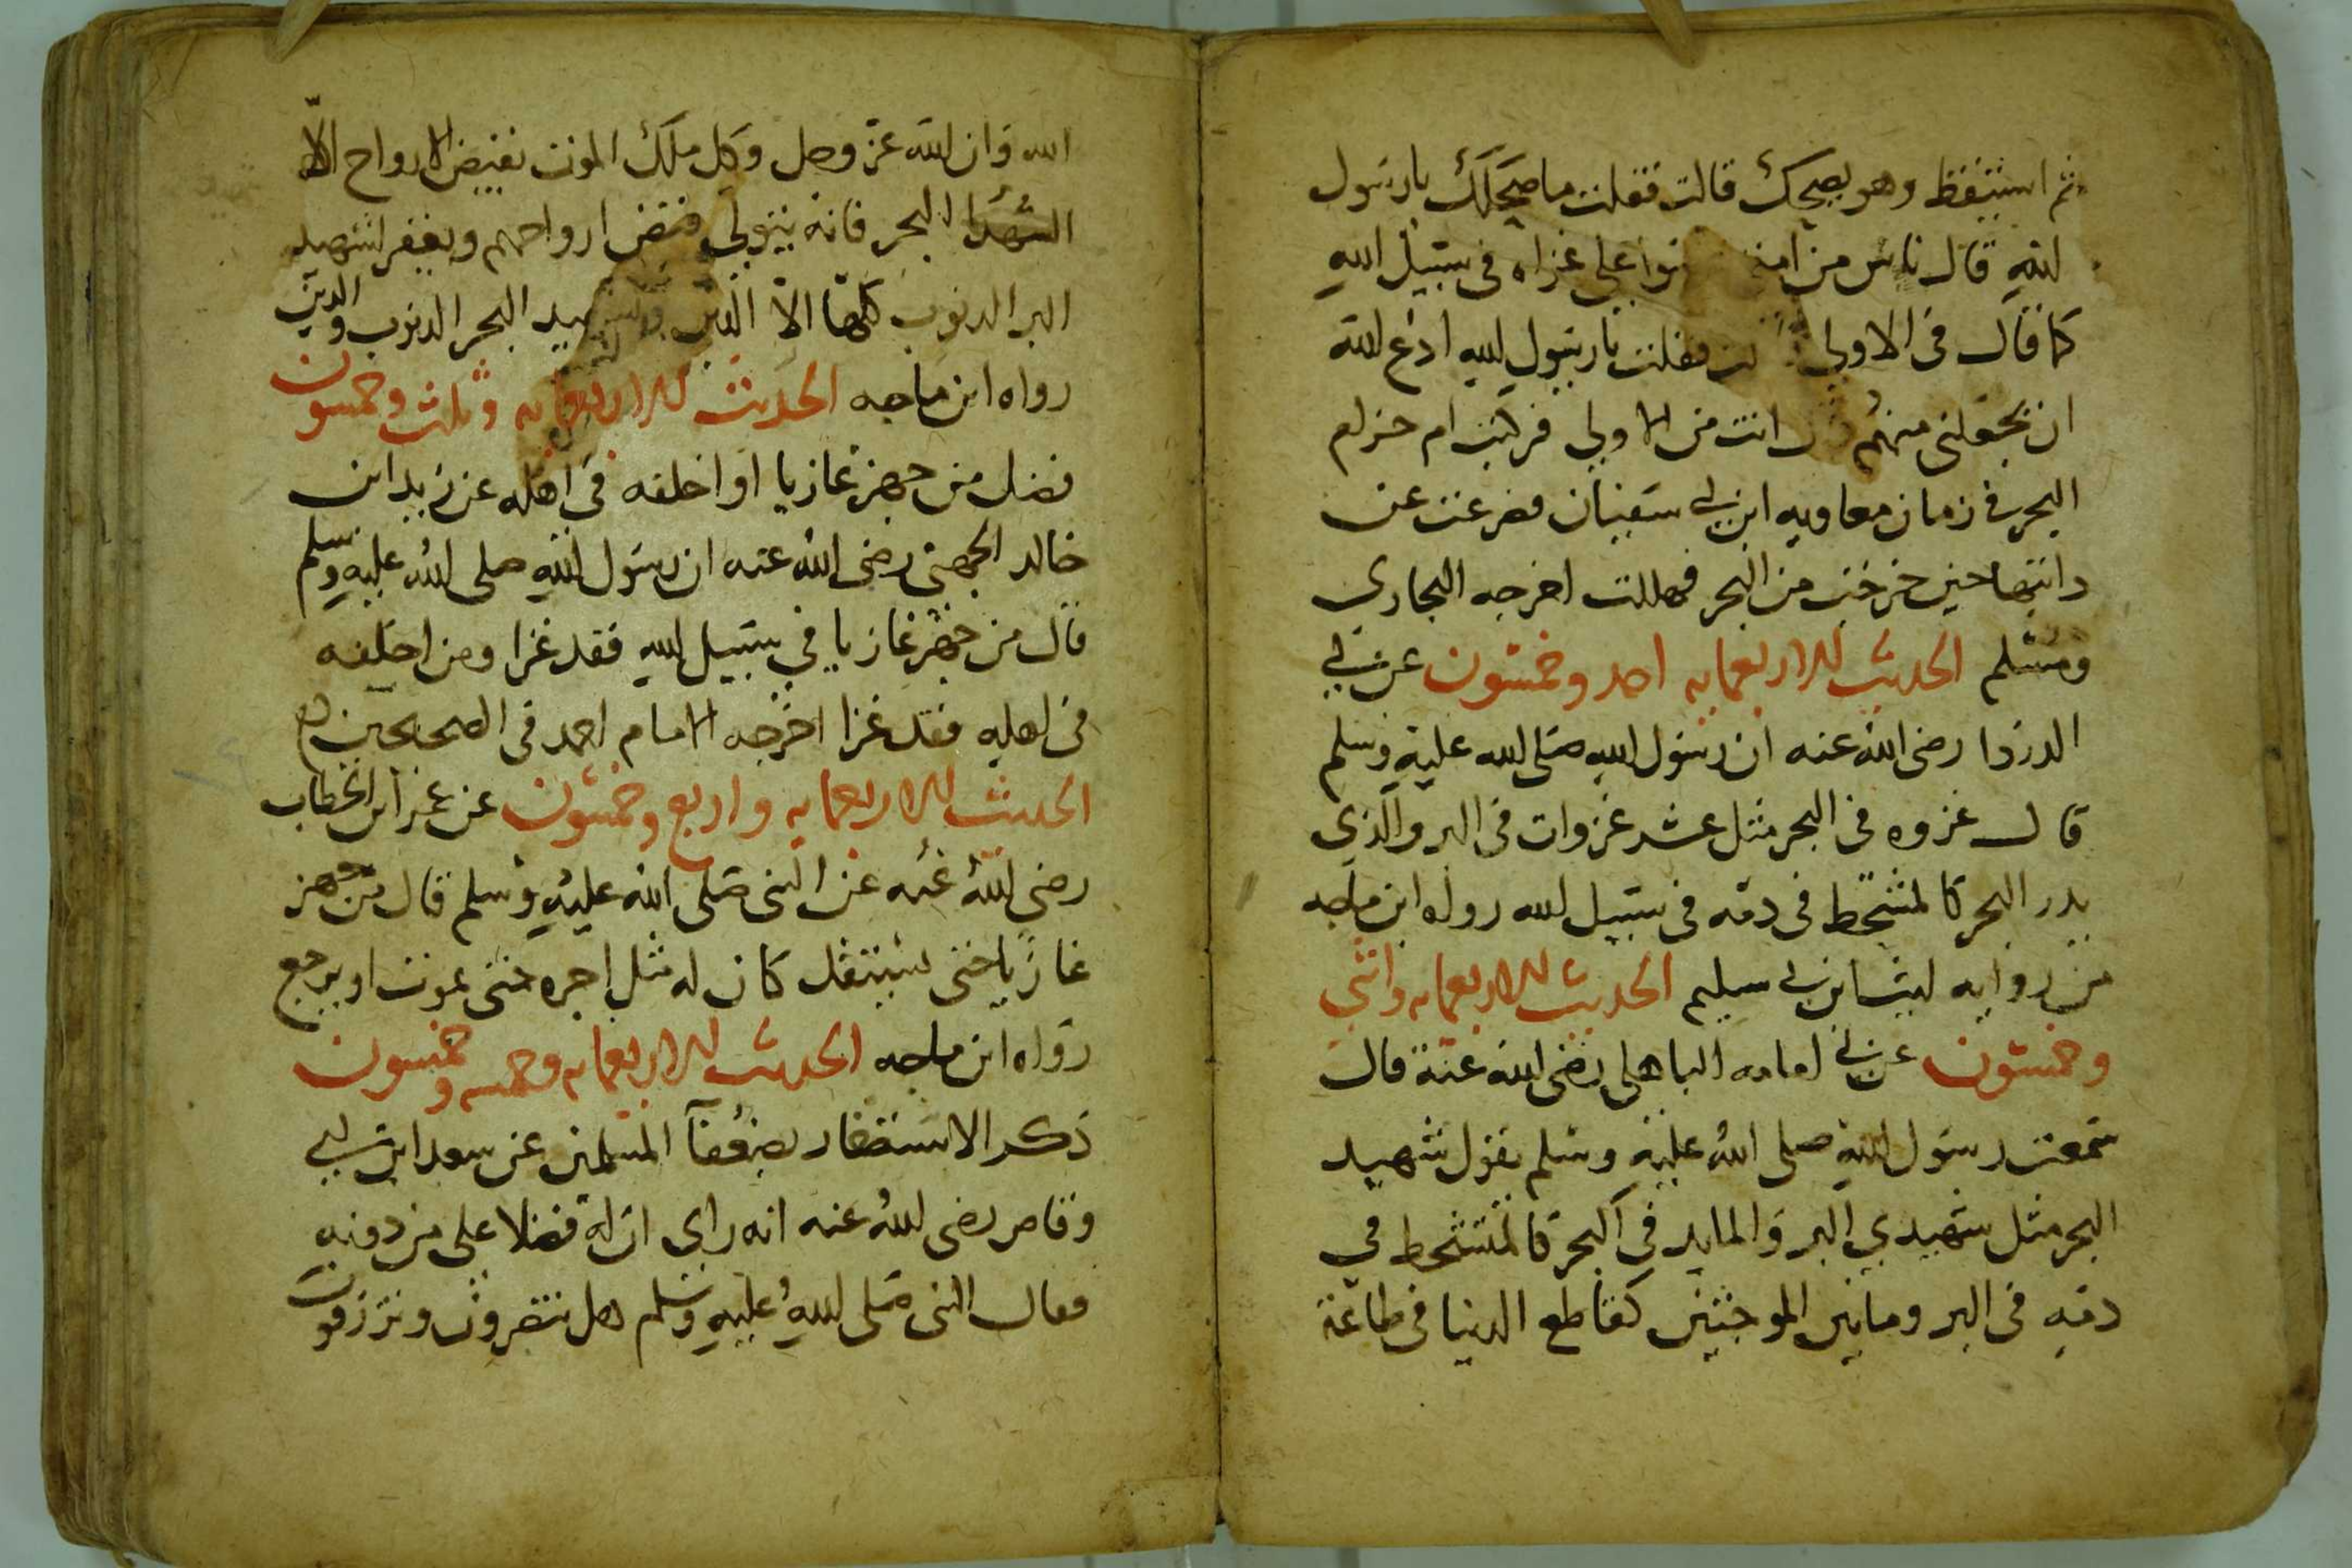 ثم استيقظ وهو يضحك قالت فقلت ما يضحكك يا رسول
الله قال ناس من امتي علي غزاه في سبيل الله
كما قال في الاولي فقلت يا رسول الله ادع الله
ان يجعلني منهم قال انت من الاولي فركبت ام حرام
البحر في زمان معاويه ابن ابي سفيان فصرعت عن
دابتها حين خرجت من البحر فهلكت اخرجه البخاري
ومسلم الحديث الاربعمايه احد وخمسون عن ابي
الدردا رضي الله عنه ان رسول الله صلى الله عليه وسلم
قال غزوه في البحر مثل عشر غزوات في البر والذي
يدر البحر كالمتشحط في دمه في سبيل الله رواه ابن ماجه
من روايه ليث ابن ابي سليم الحديث الاربعمايه واثني
وخمسون عن ابي امامه الباهلي رضي الله عنه قال
سمعت رسول الله صلى الله عليه وسلم يقول شهيد
البحر مثل شهيدي البر والمايد في البحر كالمتشحط في
دمه في البر وما بين الموجتين كقاطع الدنيا في طاعة
الله وان الله عز وجل وكل ملك الموت بقبض الارواح الا
الشهدا البحر فانه يتولي قبض ارواحهم ويغفر لشهيد
البر الدنوب كلها الا الدين ولشهيد البحر الدنوب والدين
رواه ابن ماجه الحديث الاربعمايه وثلث وخمسون
فضل من جهز غازيا او اخلفه في اهله عن زيد ابن
خالد الجهني رضي الله عنه ان رسول الله صلى الله عليه وسلم
قال من جهز غازيا في سبيل الله فقد غزا ومن اخلفه
في اهله فقد غزا اخرجه الامام احمد في الصحيحين
الحديث الاربعمايه واربع وخمسون عن عمر ابن الخطاب
رضي الله عنه عن النبي صلى الله عليه وسلم قال من جهز
غازيا حتى يستقل كان له مثل اجره حتى يموت او يرجع
رواه ابن ماجه الحديث الاربعمايه وخمسه وخمسون
ذكر الاستنصار بضعفآ المسلمين عن سعد ابن ابي
وقاص رضي الله عنه انه راى ان له فضلا على من دونه
فقال النبي صلى الله عليه وسلم هل تنصرون وترزقون